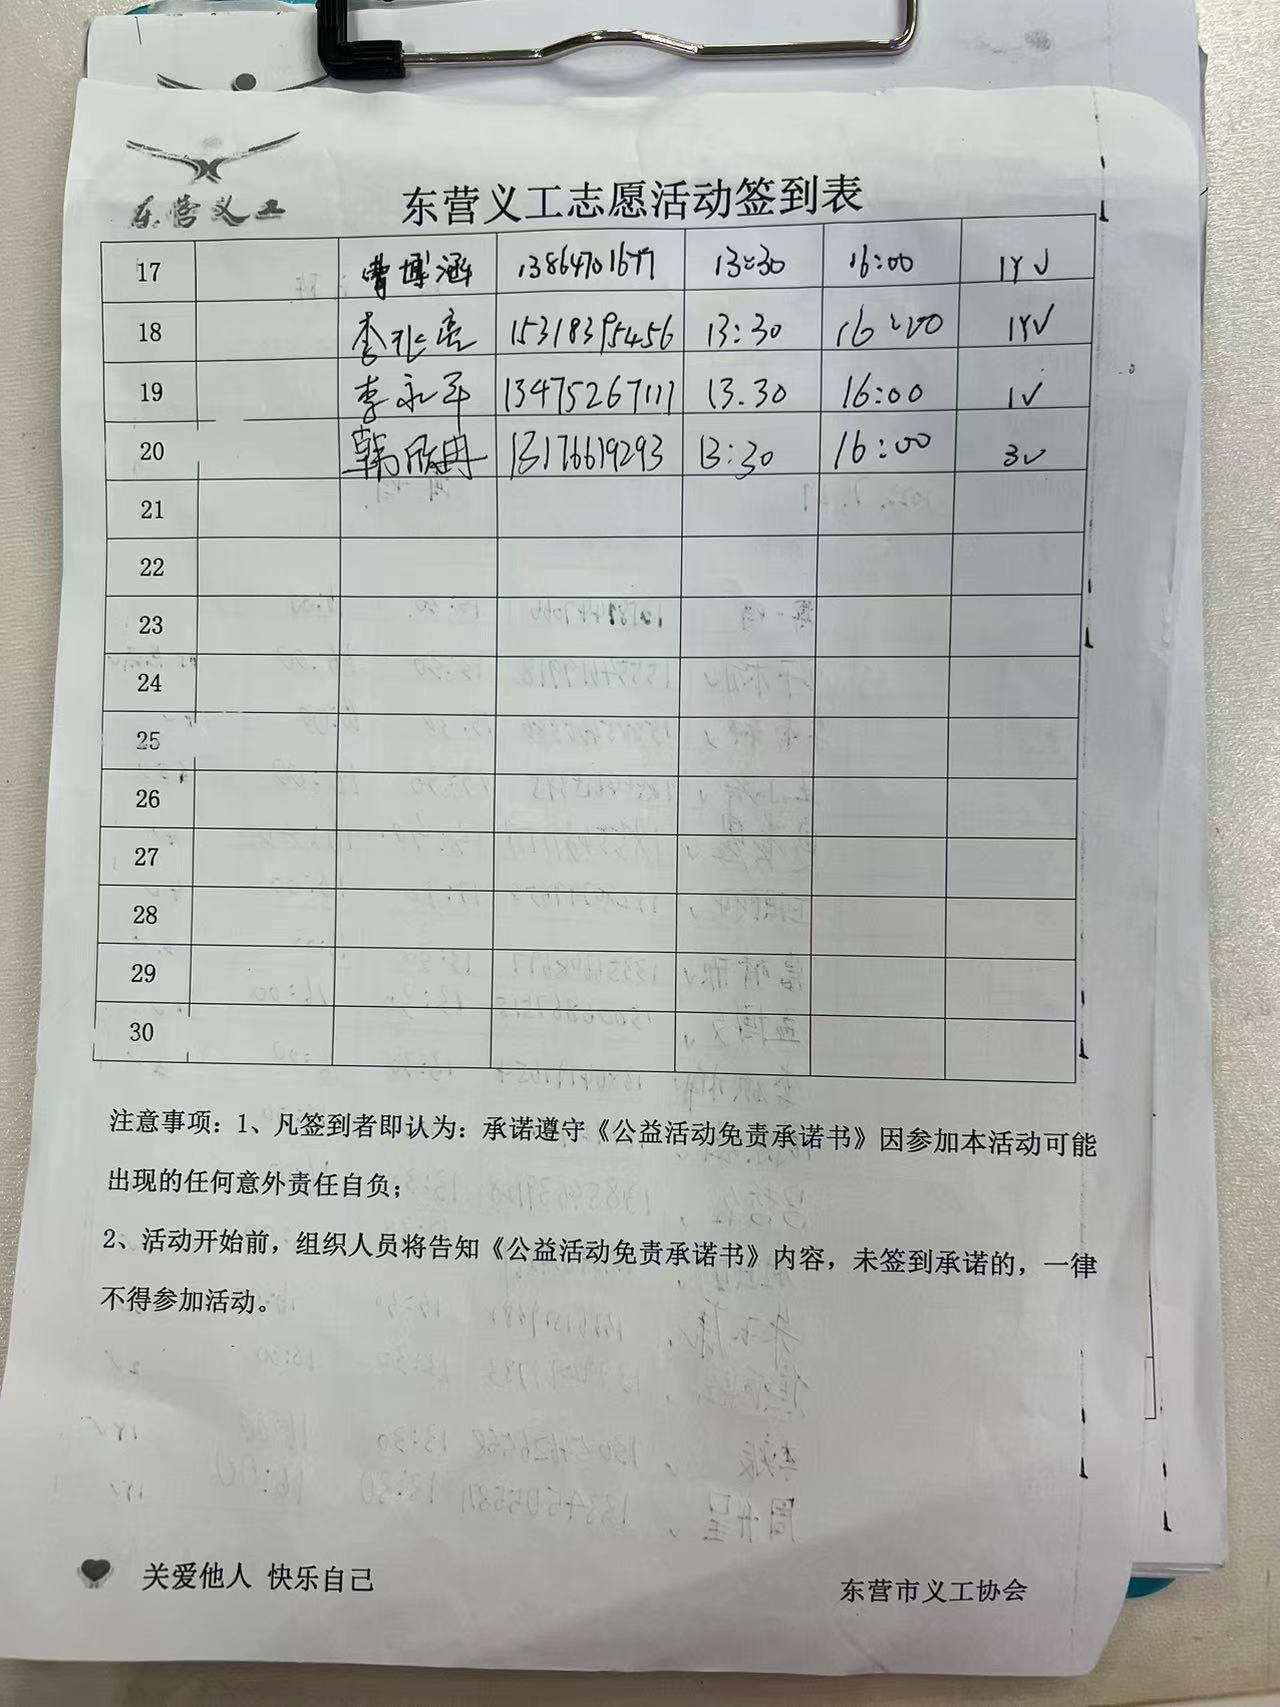 东营义工
东营义工志愿活动签到表
17 曹博涵 13:30 16:00 1Y√
18 李 亮 15318395456 13:30 16:00 1Y√
19 李永平 13475267111 13.30 16:00 1√
20 韩欣冉 13176619293 13:30 16:00 3√
21
22
23
24
25
26
27
28
29
30
注意事项：1、凡签到者即认为：承诺遵守《公益活动免责承诺书》因参加本活动可能
出现的任何意外责任自负；
2、活动开始前，组织人员将告知《公益活动免责承诺书》内容，未签到承诺的，一律
不得参加活动。
关爱他人 快乐自己
东营市义工协会